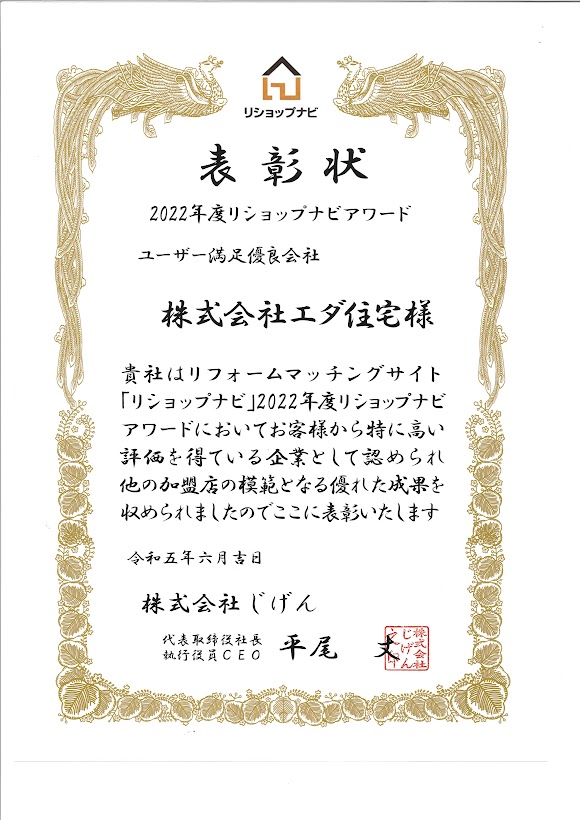 リショップナビ
表彰状
2022年度リショップナビアワード
ユーザー満足優良会社
株式会社エダ住宅様
貴社はリフォームマッチングサイト
「リショップナビ」2022年度リショップナビ
アワードにおいてお客様から特に高い
評価を得ている企業として認められ
他の加盟店の模範となる優れた成果を
収められましたのでここに表彰いたします
令和五年六月吉日
株式会社じげん
代表取締役社長
執行役員CEO
平尾 丈
株式会社
じげん
之印